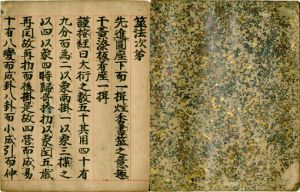 筮法次第
先進圓座下而一揖炷香書筮之意趣
于黄漆板着座一揖
謹按経曰大衍之数五十其用四十有
九分而為二以象兩掛一以象三揲之
以四以象四時歸奇於扐以象閏五歳
再閏故再扐而後掛是故四營而成易
十有八變而成卦八卦而小成引而伸